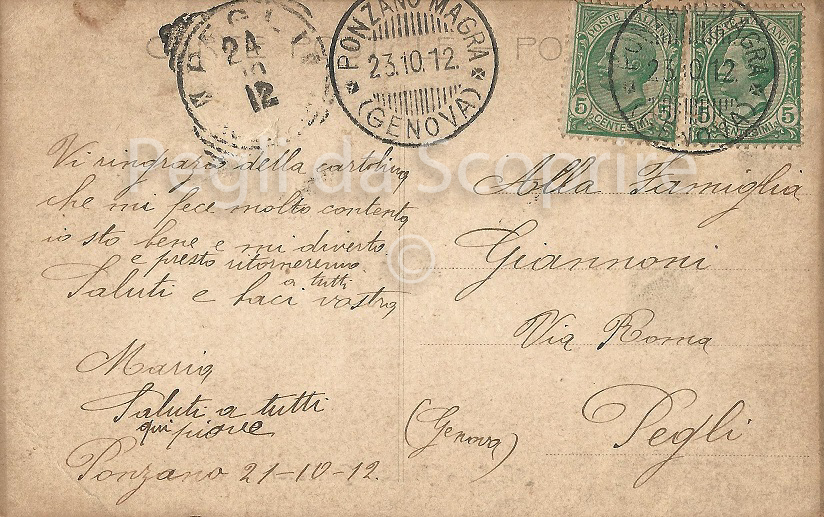 PEGLI
24
12
PONZANO MAGRA
23.10.12.
(GENOVA)
POSTE ITALIANE
5 5
CENTESIMI
POSTE ITALIANE
5 5
CENTESIMI
PONZANO MAGRA
23.10.12.
(GENOVA)
Pegli da Scoprire
©
Vi ringrazio della cartolina
che mi fece molto contenta
io sto bene e mi diverto
e presto ritorneremo
a tutti
Saluti e baci vostra
Maria
Saluti a tutti
qui piove
Ponzano 21-10-12.
Alla Famiglia
Giannoni
Via Roma
Pegli
(Genova)